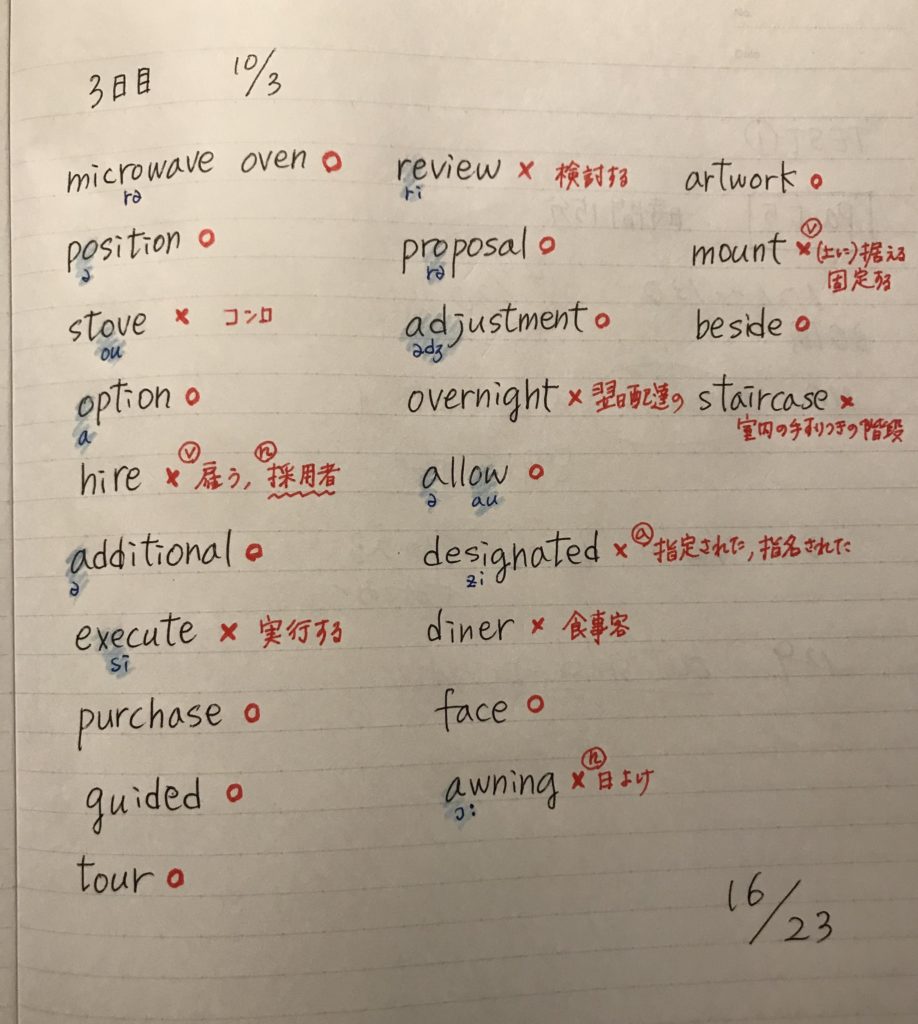 3日目 10/3
microwave oven ○
rə
position ○
ə
stove × コンロ
ou
option ○
a
hire × ⓥ雇う, ⓝ採用者
additional ○
ə
execute × 実行する
si
purchase ○
guided ○
tour ○
review × 検討する
ri
proposal ○
rə
adjustment ○
ədʒ
overnight × 翌日配達の
allow ○
ə au
designated × ⓐ指定された, 指名された
zi
diner × 食事客
face ○
awning × ⓝ日よけ
ɔ:
artwork ○
mount × ⓥ(上に)据える
固定する
beside ○
staircase ×
室内の手すりつきの階段
16/23